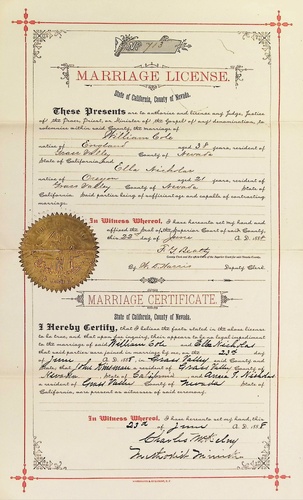 No. 713
MARRIAGE LICENSE.
State of California, County of Nevada.
These Presents, are to authorize and license any Judge, Justice
of the Peace, Priest, or Minister of the Gospel of any denomination, to
solemnize within said County, the marriage of
William Cole
native of England aged 38 years, resident of
Grass Valley County of Nevada
State of California, and Ella Nicholas
native of Oregon aged 21 years, resident of
Grass Valley, County of Nevada State of
California. Said parties being of sufficient age and capable of contracting
marriage.
In Witness Whereof, I have hereunto set my hand and
affixed the Seal of the Superior Court of said County,
this 22nd day of June A. D. 1888
F. G. Beatty
County Clerk and ex-officio Clerk of the Superior Court in and for Nevada County.
By Deputy Clerk.
MARRIAGE CERTIFICATE.
State of California, County of Nevada.
I Hereby Certify, that I believe the facts stated in the above license
to be true, and that upon due inquiry, there appears to be no legal impediment
to the marriage of said William Cole and Ella Nicholas
that said parties were joined in marriage by me, on the 23rd day
of June A. D. 1888, in Grass Valley said County and
State; that John a resident of Grass Valley County of
Nevada State of California and Annie T. Nicholas
a resident of Grass Valley County of Nevada, State of
California, were present as witnesses of said ceremony.
In Witness Whereof, I have hereunto set my hand, this
23rd day of June A. D. 1888
Charles McKelvey
Methodist Minister